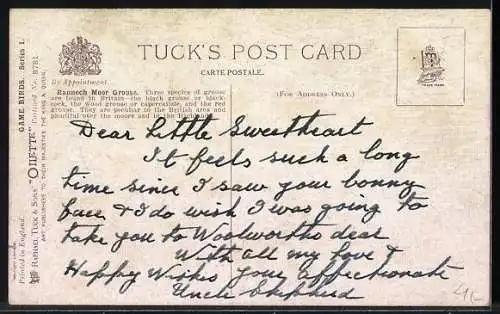 TUCK'S POST CARD
CARTE POSTALE.
By Appointment.
(For Address Only.)
TRADE MARK
Rannoch Moor Grouse. Three species of grouse
are found in Britain—the black grouse or black-
cock, the wood grouse or capercailzie, and the red
grouse. They are peculiar to the British Area and
plentiful over the moors and in the Highlands.
GAME BIRDS. Series I.
"OILETTE" Postcard No. 8781
RAPHAEL TUCK & SONS'
ART PUBLISHERS TO THEIR MAJESTIES THE KING & QUEEN.
Printed in England.
Dear Little Sweetheart
It feels such a long
time since I saw your bonny
face, & I do wish I was going to
take you to Woolworths dear
With all my love &
Happy Wishes your affectionate
Uncle Shepherd